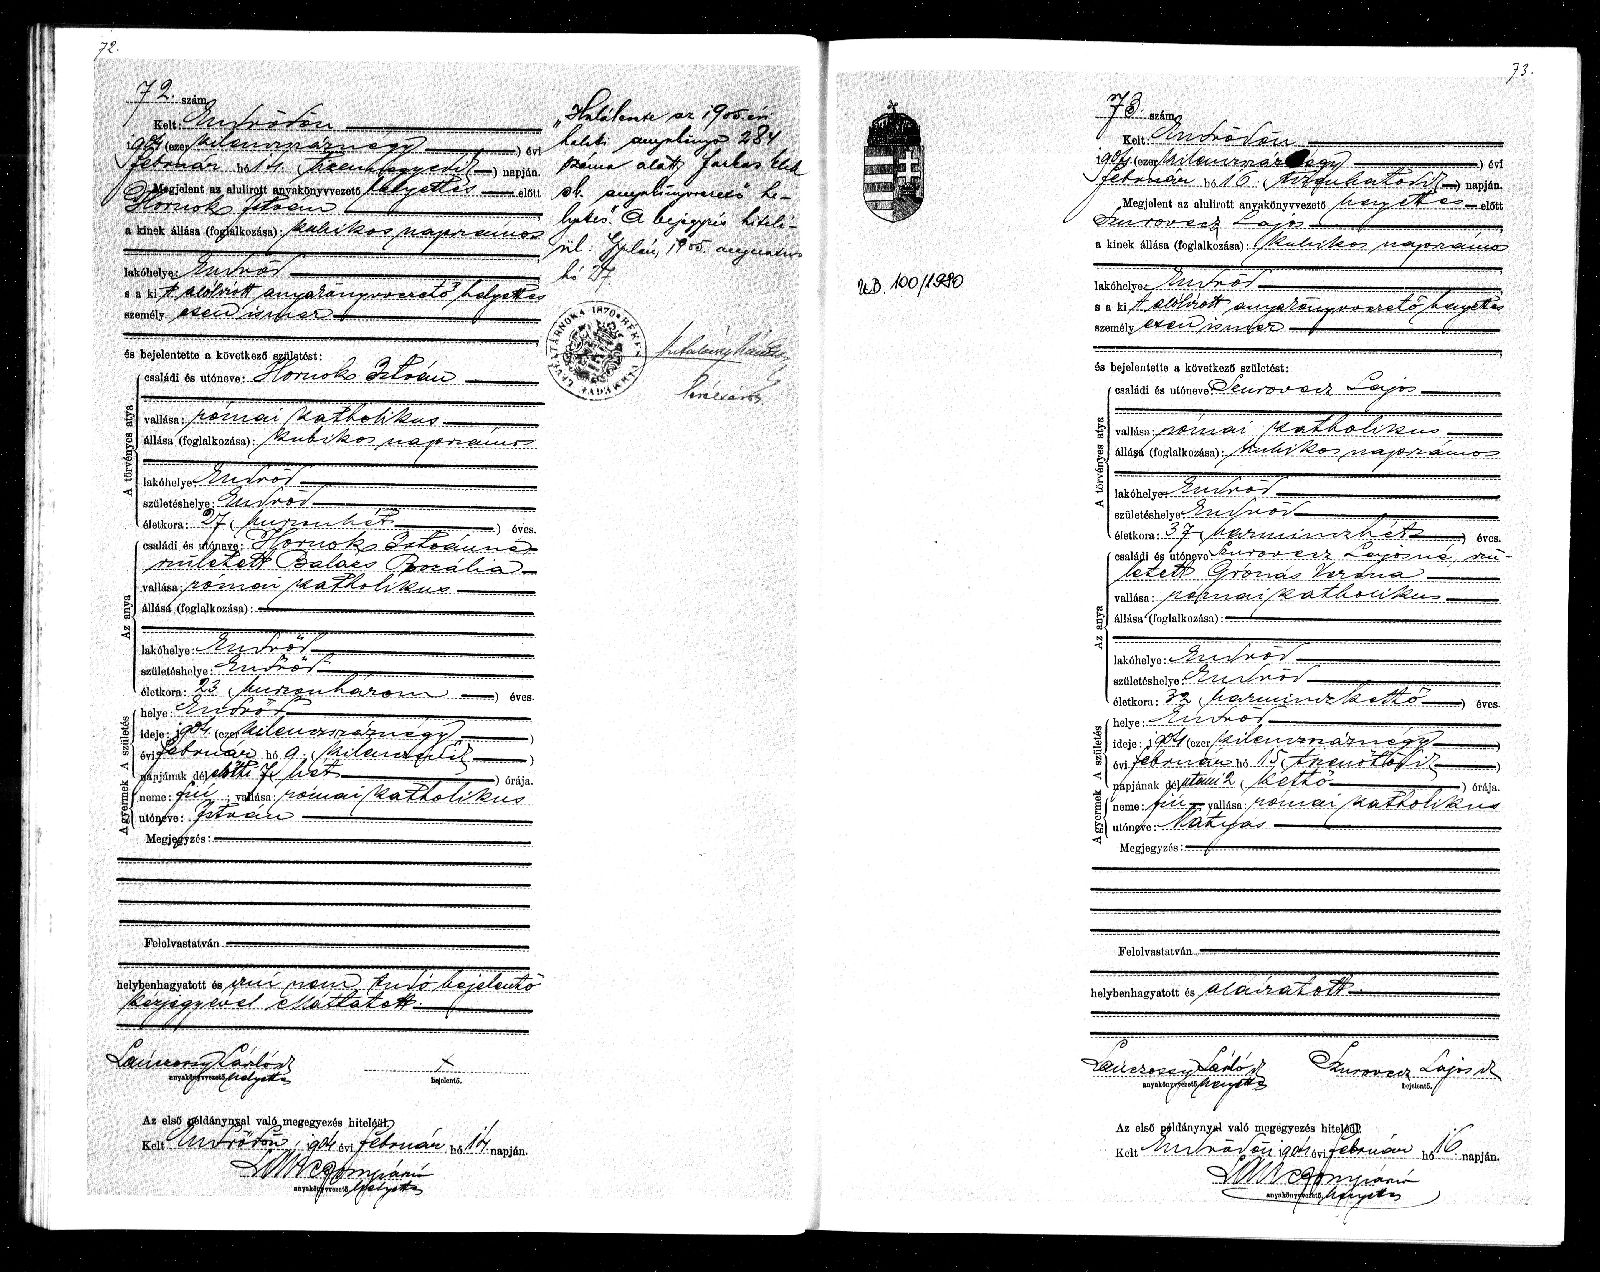 72.
72. szám
Kelt: Endrődön
1904 (ezer kilenczszáznégy) évi
február hó 14. (tizennegyedik) napján.
Megjelent az alulirott anyakönyvvezető helyettes előtt
Hornok István
a kinek állása (foglalkozása): kubikos napszámos
lakóhelye: Endrőd
s a kit alólirott anyakönyvvezető helyettes
személyesen ismer
és bejelentette a következő születést:
A törvényes atya
családi és utóneve: Hornok István
vallása: római katholikus
állása (foglalkozása): kubikos napszámos
lakóhelye: Endrőd
születéshelye: Endrőd
életkora: 27 (huszonhét) éves.
Az anya
családi és utóneve: Hornok Istvánné
született Balázs Rozália
vallása: római katholikus
állása (foglalkozása):
lakóhelye: Endrőd
születéshelye: Endrőd
életkora: 23 (huszonhárom) éves.
A gyermek A születés
helye: Endrőd
ideje: 1904 (ezer kilenczszáznégy)
évi február hó 9. (kilenczedik)
napjának délelőtti 7 (hét) órája.
neme: fiú; vallása: római katholikus
utóneve: István
Megjegyzés:
Felolvastatván
helybenhagyatott és irni nem tudó bejelentő
kézjegyével elláttatott.
László sk
anyakönyvvezető helyettes
x
bejelentő.
Az első példánynyal való megegyezés hiteléül.
Kelt Endrődön, 1904 évi február hó 14 napján.
anyakönyvvezető helyettes
„Halálesete az 1905. évi
haleti anyakönyv 284
száma alatt. Farkas Elek
sk. anyakönyvvezető he-
lyettes." A bejegyzés hitelé-
ül: Gyulán, 1905. augusztus
hó 27.
BÉKÉS VÁRMEGYE LEVÉLTÁRNOKA 1870
73.
73 szám
Kelt Endrődön
1904 (ezer kilenczszáznégy) évi
február hó 16. (tizenhatodik) napján.
Megjelent az alulirott anyakönyvvezető helyettes előtt
Szurovecz Lajos
a kinek állása (foglalkozása): kubikos napszámos
lakóhelye: Endrőd
s a kit alólirott anyakönyvvezető helyettes
személyesen ismer
és bejelentette a következő születést:
A törvényes atya
családi és utóneve: Szurovecz Lajos
vallása: római katholikus
állása (foglalkozása): kubikos napszámos
lakóhelye: Endrőd
születéshelye: Endrőd
életkora: 37 (harminczhét) éves.
Az anya
családi és utóneve Szurovecz Lajosné, szü-
letett Gronás Verona
vallása: római katholikus
állása (foglalkozása):
lakóhelye: Endrőd
születéshelye: Endrőd
életkora: 32 (harminczkettő) éves.
A gyermek A születés
helye: Endrőd
ideje: 1904 (ezer kilenczszáznégy)
évi február hó 15 (tizenötödik)
napjának délutáni 2 (kettő) órája.
neme: fiú; vallása: római katholikus
utóneve: Mátyás
Megjegyzés:
Felolvastatván
helybenhagyatott és aláiratott.
László sk
anyakönyvvezető helyettes
Szurovecz Lajos sk
bejelentő.
Az első példánynyal való megegyezés hiteléül.
Kelt Endrődön 1904 évi február hó 16 napján.
anyakönyvvezető helyettes
100/1990